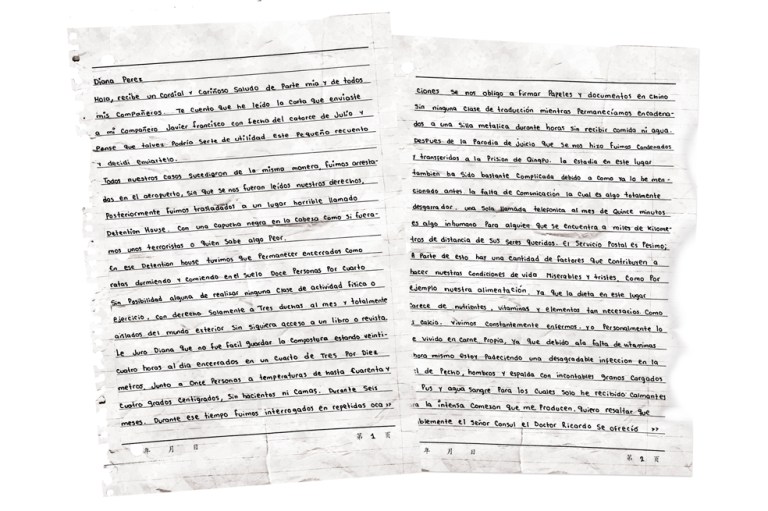 Diana Perez
Hola, recibe un Cordial y Cariñoso Saludo de Parte mia y de todos
mis Compañeros. Te Cuento que he leído la Carta que enviaste
a mi Compañero Javier francisco con fecha del catorce de Julio y
Pense que talvez Podría Serte de utilidad este Pequeño recuento
y decidi enviartelo.
Todos nuestros casos Sucedieron de la misma manera, fuimos arresta-
dos en el aeropuerto, Sin que Se nos fueran leídos nuestros derechos,
Posteriormente fuimos trasladados a un lugar horrible llamado
Detention House. Con una capucha negra en la Cabeza Como Si fuera-
mos unos terroristas o quien Sabe algo Peor.
En ese Detention house tuvimos que Permanecer encerrados Como
ratas durmiendo y Comiendo en el Suelo Doce Personas Por Cuarto
Sin Posibilidad alguna de realisar ninguna Clase de actividad física o
ejercicio. Con derecho Solamente a Tres duchas al mes y totalmente
aislados del mundo exterior Sin Siquiera acceso a un libro o revista.
Le Juro Diana que no fue Facil guardar la Compostura estando veinti-
cuatro horas al día encerrados en un Cuarto de Tres Por Diez
metros, Junto a Once Personas a temperaturas de hasta Cuarenta y
Cuatro grados Centígrados, Sin hacientos ni Camas. Durante Seis
meses. Durante ese tiempo fuimos interrogados en repetidas oca »
年 月 日
第 1 页
ciones Se nos obligo a firmar Papeles y documentos en Chino
Sin ninguna Clase de traducción mientras Permanecíamos encadena-
dos a una Silla metalica durante horas Sin recibir comida ni agua.
Despues de la Parodia de Juicio que Se nos hizo fuimos Condenados
y transferidos a la Prision de Qingpu. la Estadía en este lugar
también ha Sido bastante Complicada debido a Como ya lo he men-
cionado antes la falta de Comunicación la Cual es algo totalmente
desgarrador. una Sola llamada telefonica al mes de Quince minutos
es algo inhumano Para alguien que se encuentra a miles de Kilome-
tros de distancia de Sus Seres queridos. El Servicio Postal es Pesimo;
A Parte de esto hay una Cantidad de factores que Contribuyen a
hacer nuestras Condiciones de vida Miserables y tristes. Como Por
ejemplo nuestra alimentación. ya que la dieta en este lugar
carece de nutrientes, vitaminas y elementos tan necesarios Como
Calcio. Vivimos Constantemente enfermos. yo Personalmente lo
e vivido en Carne Propia, ya que debido ala falta de vitaminas
hora mismo Estoy Padeciendo una desagradable infeccion en la
de Pecho, hombros y espalda con incontables granos Cargados
Pus y agua Sangre Para los Cuales Solo he recibido Calmantes
la intensa Comeson que me Producen. Quiero resaltar que
blemente el Señor Consul el Doctor Ricardo Se ofreció »
年 月 日
第 2 页